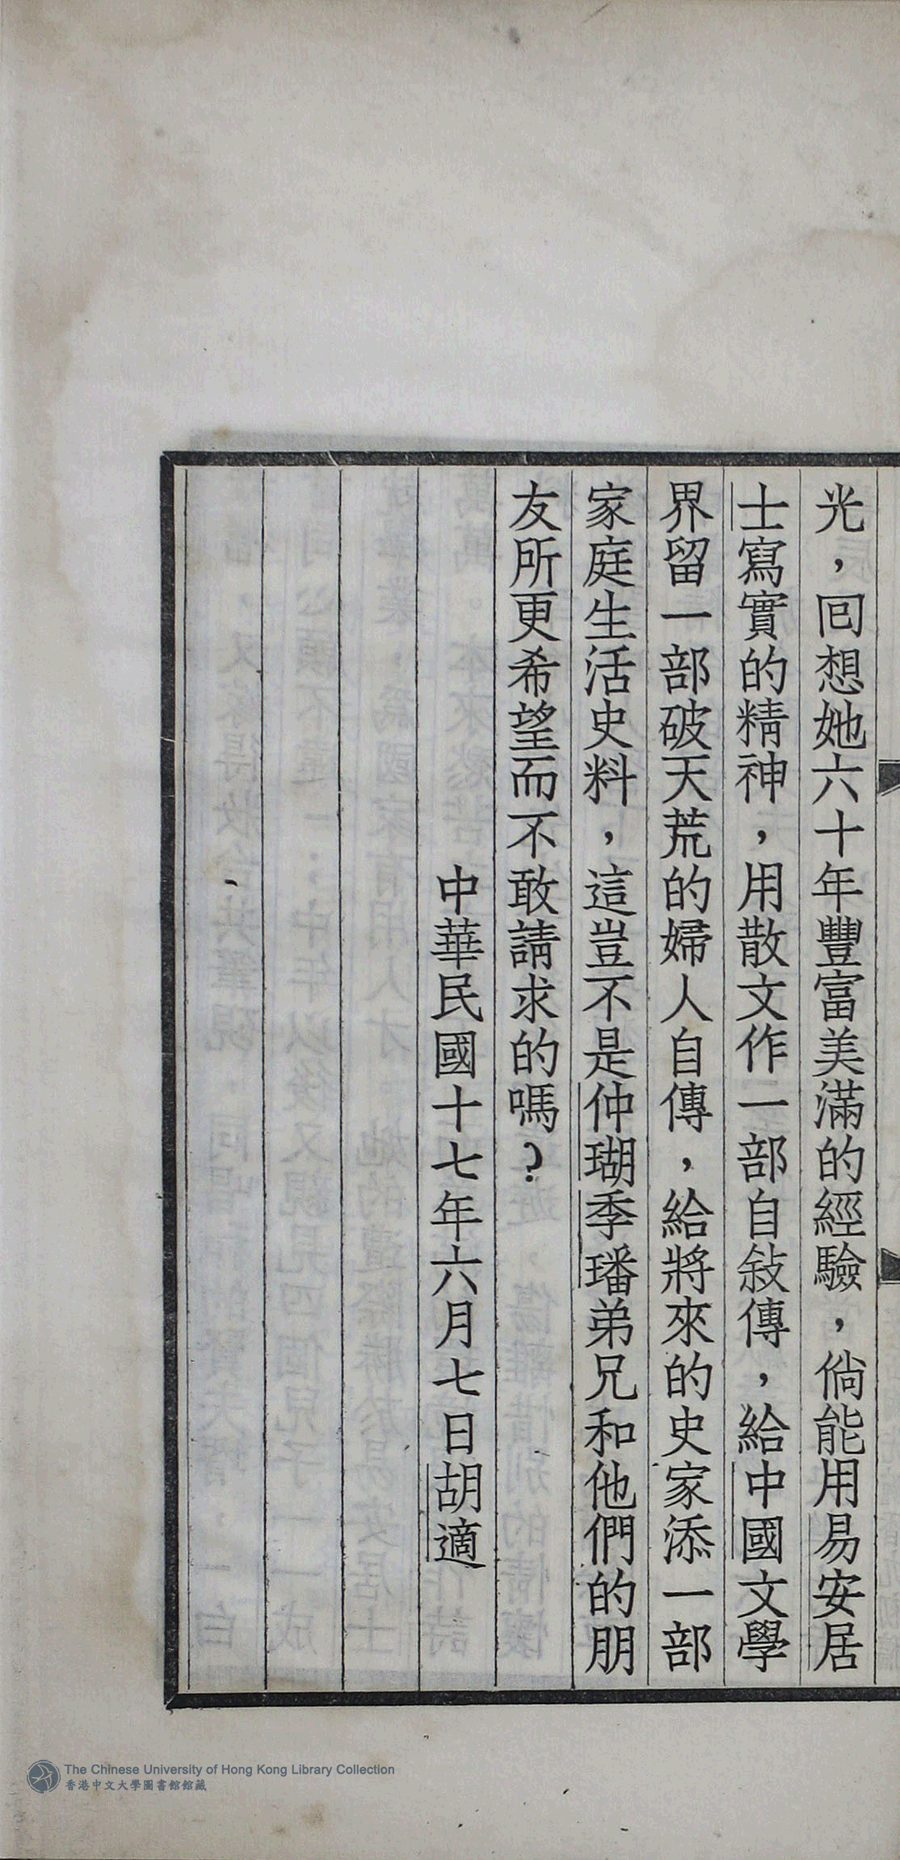 光，回想她六十年豐富美滿的經驗，倘能用易安居
士寫實的精神，用散文作一部自敍傳，給中國文學
界留一部破天荒的婦人自傳，給將來的史家添一部
家庭生活史料，這豈不是仲瑚季璠弟兄和他們的朋
友所更希望而不敢請求的嗎？
中華民國十七年六月七日胡適
The Chinese University of Hong Kong Library Collection
香港中文大學圖書館館藏